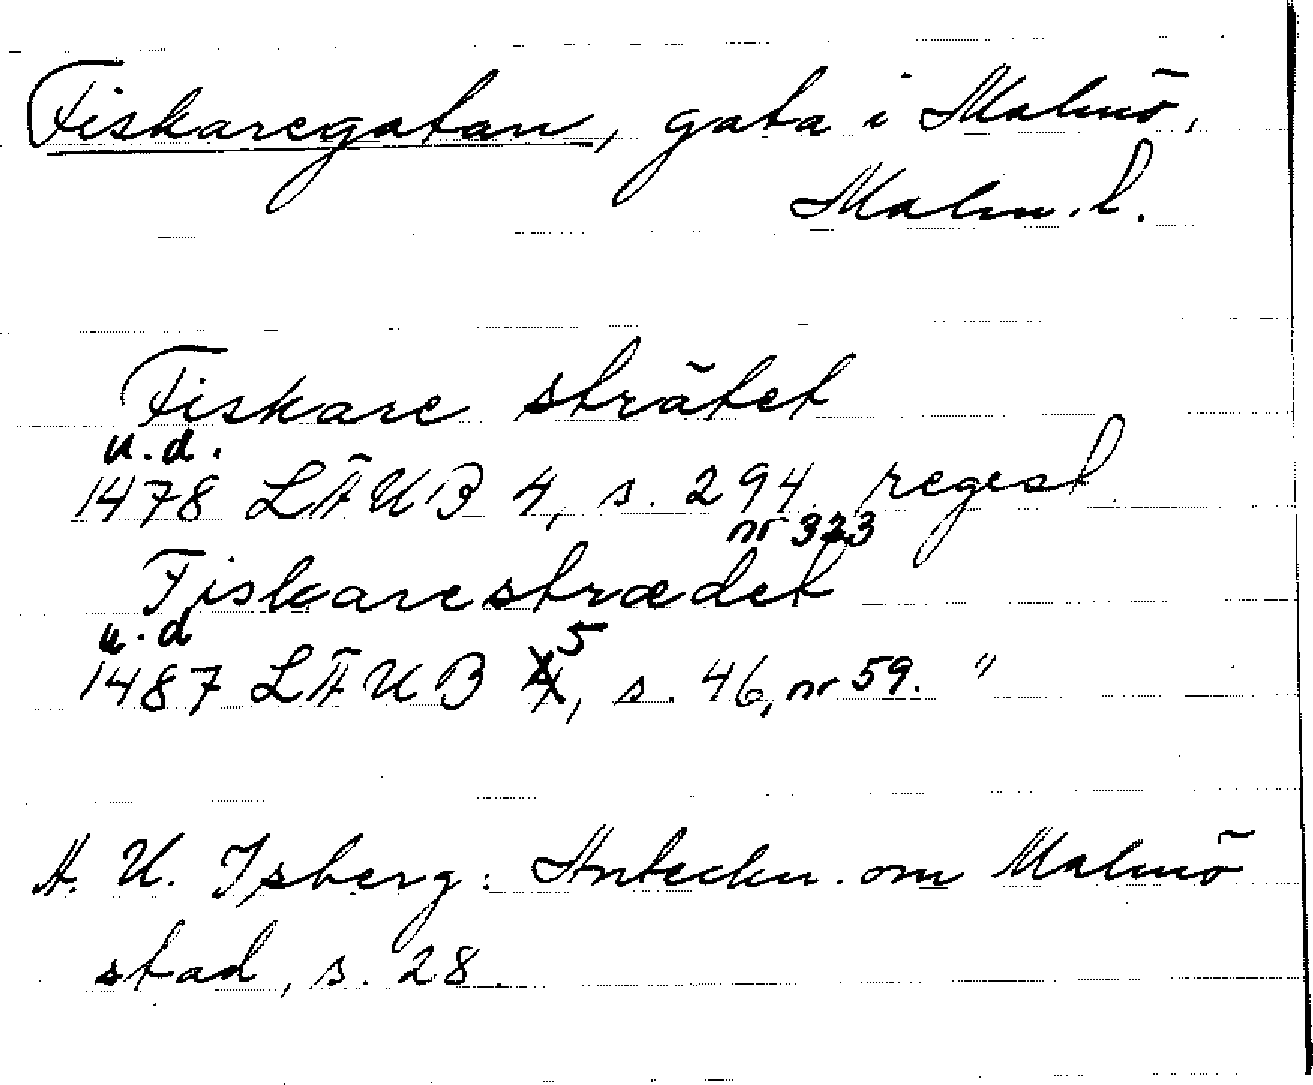 Fiskaregatan, gata i Malmö,
Malm. l.
Fiskare strätet
u.d.
1478 LÄUB 4, s. 294, regest.
nr 323
Fiskarestrædet
u.d
1487 LÄUB 5, s. 46, nr 59. "
A. U. Isberg: Anteckn. om Malmö
stad, s. 28.